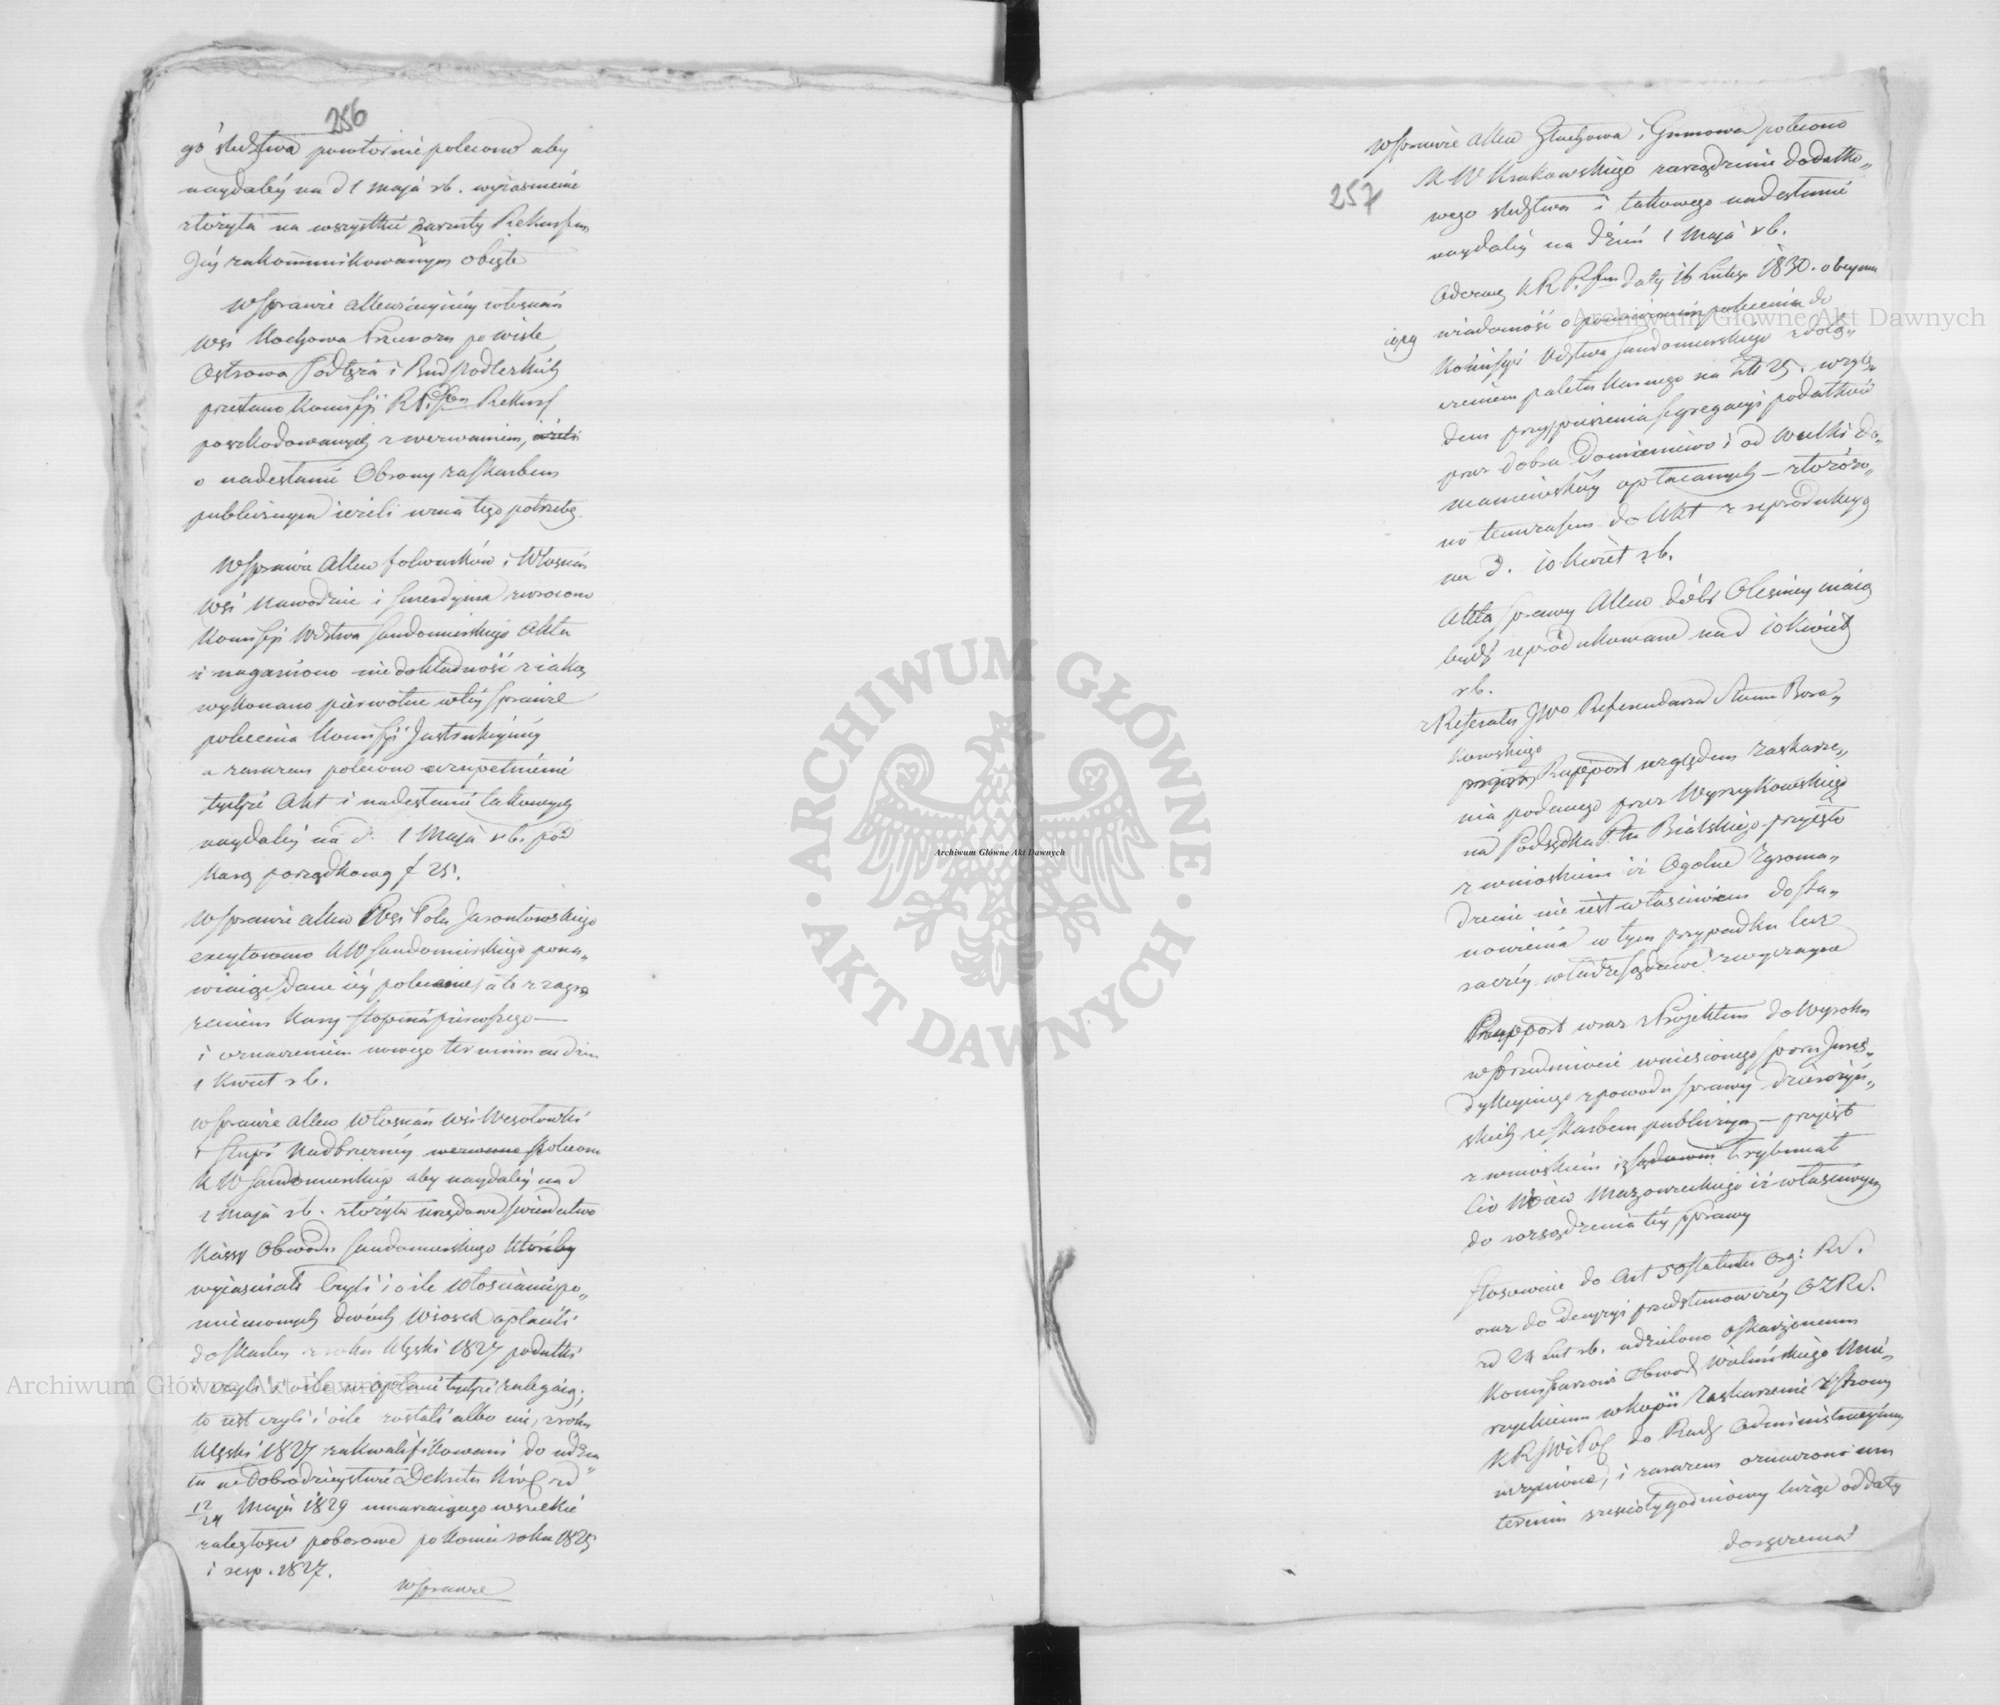 256
go śledztwa powtórnie polecono aby
naydaléy na d 1 Maja rb. wyiaśnienie
złożyła na wszystkie zarzuty Rekursem
Jéy zakommunikowanym obięte
W Sprawie allewiacyinéy włościan
Wsi Kochowa Przewozu po wiśle
Ostrowa Podłęża i Bud Podleskich
przesłano Kommissyi R P. i Sbu Rekurs
poszkodowanych z wezwaniem, ieżeli
o nadesłanie Obrony za Skarbem
publicznym ieżeli uzna tego potrzebę.
W Sprawie Allew folwarków i Włościan
Wsi Nawodzic i Smerdyna zwrócono
Kommissyi Wdztwa Sandomierskiego Akta
i naganiono niedokładność z iaką
wykonano pierwotne w téy Sprawie
polecenia Kommissyi Instrukcyinéy
a zarazem polecono uzupełnienie
tychże Akt i nadesłanie takowych
naydaléy na d. 1 Maja rb. pod
karą porządkową f 25.
W Sprawie allew Wsi Pola Jarontowskiego
excytowano KW Sandomierskiego pona„
wiaiąc dane iéy polecenie, a to z zagro
żeniem kary stopnia pierwszego —
i oznaczeniem nowego terminu na dzień
1 Kwiet rb.
W Sprawie allew Włościan wsi Wesołówki
i Słupi Nadbrzeżnéy wezwano polecono
K W Sandomierskiego aby naydaléy na d
1 Maja rb. złożyła urzędowe świadectwo
Kassy Obwodu Sandomierskiego któréby
wyiaśniało czyli i o ile Włościanie po„
mienionych dwóch Wiosek opłacili
do Skarbu z roku klęski 1827 podatki
i czyli i o ile w opłacie tychże zalegaią;
to iest czyli i o ile zostali albo nie, z roku
klęski 1827 zakwalifikowani do udzia„
łu w dobrodzieystwie Dekretu Król z d
12/24 Maja 1829 umarzaiącego wszelkie
zaległości poborowe po koniec roku 1825
i resp. 1827.
W Sprawie
257
W Sprawie Allew Głuchowa i Gumowa polecono
K W Krakowskiego zarządzenie dodatko„
wego śledztwa i takowego nadesłanie
naydaléy na dzień 1 Maja rb.
Odezwę KRPiSbu daty 16 Lutego 1830. obeymu
iącą wiadomość o ponowieniu polecenia do
Kommissyi Wdztwa Sandomierskiego z dołą„
czeniem paletu karnego na Złt 25. wzglę„
dem przyspieszenia segregacyi podatków
przez dobra Domaniewo i od Wulki Do„
maniewskiéy opłacanych — złożo„
no tymczasem do Akt z reprodukcyą
na d. 10 Kwiet rb.
Akta Sprawy Allew dóbr Oleśnicy maią
bydź reprodukowane na d 10 Kwiet
rb.
z Referatu JWo Referendarza Stanu Boża„
kowskiego
Rapport względem zaskarże„
nia podanego przez Wyszykowskiego
na Podsędka Ptu Bialskiego przyięto
z wnioskiem iż Ogólne Zgroma„
dzenie nie iest właściwem do sta„
nowienia w tym przypadku lecz
raczéy władze sądowe zwyczayne
Rapport wraz z Projektem do Wyroku
w Przedmiocie wniesionego sporu Juris„
dykcyinego z powodu sprawy Dzierżyń„
skich ze Skarbem publicznym — przyięto
z wnioskiem iż sądowni Trybunał
Civ Wdztwa Mazowieckiego iż właściwym
do rozsądzenia téy sprawy
Stosownie do Art 50 Statutu Org: RS.
oraz do decyzyi przedstanowczéy OZRS.
z d 24 Lut rb. udzielono oskarżonemu
Kommissarzowi Obwod Wieluńskiego Umi„
rzyckiemu w kopii zaskarżenie z Strony
KRSWiPol do Rady Administracyinéy
uczynione, i zarazem oznaczono mu
termin sześciotygodniowy licząc od daty
doręczenia
Archiwum Główne Akt Dawnych
Archiwum Główne Akt Dawnych
Archiwum Główne Akt Dawnych
ARCHIWUM GŁÓWNE · AKT DAWNYCH ·